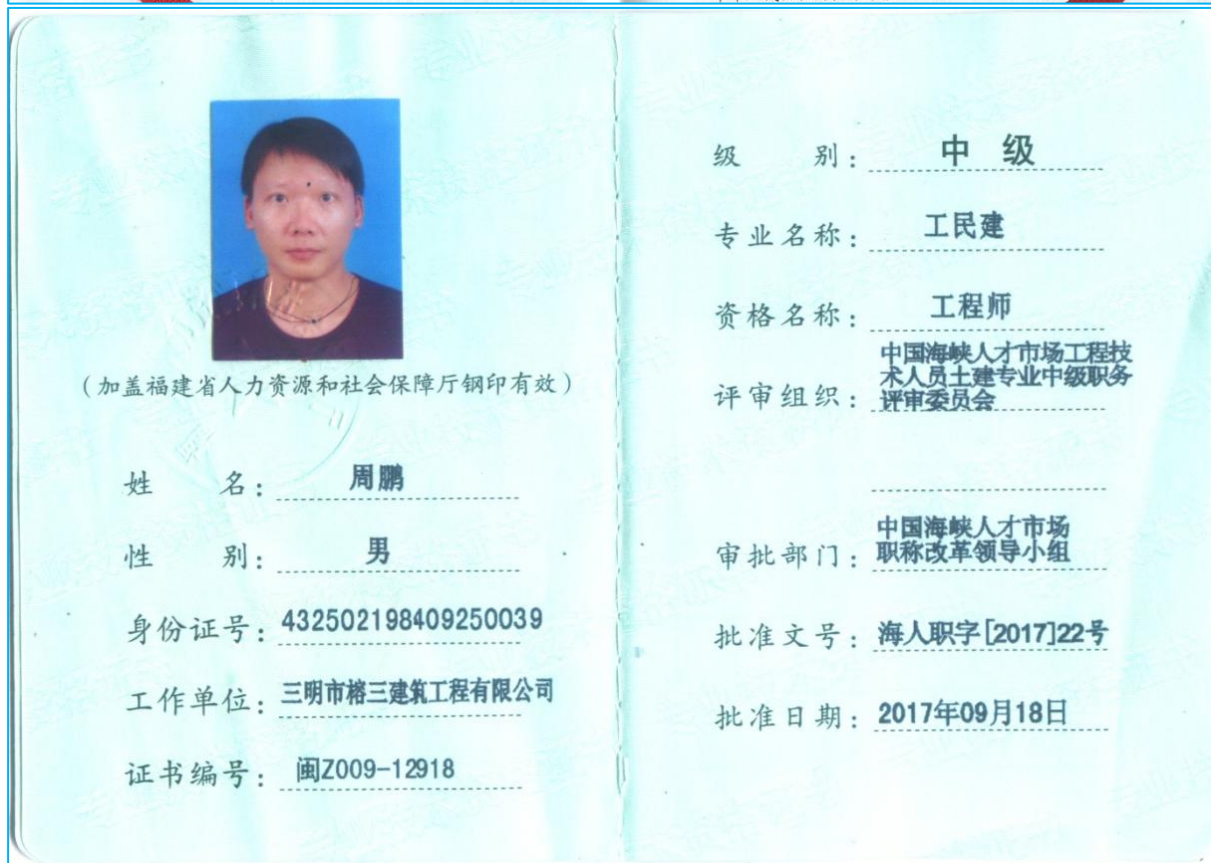 （加盖福建省人力资源和社会保障厅钢印有效）
姓 名：周鹏
性 别：男
身份证号：432502198409250039
工作单位：三明市榕三建筑工程有限公司
证书编号：闽Z009-12918
级 别：中 级
专业名称：工民建
资格名称：工程师
评审组织：中国海峡人才市场工程技
术人员土建专业中级职务
评审委员会
审批部门：中国海峡人才市场
职称改革领导小组
批准文号：海人职字[2017]22号
批准日期：2017年09月18日